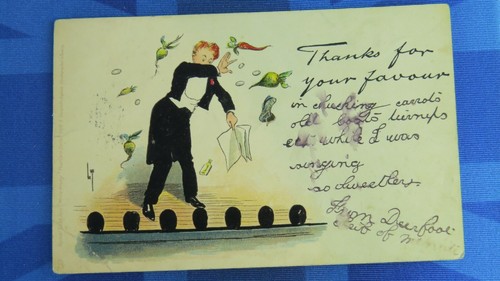 Thanks for
your favour
in chucking carrots
old boots turnips
ect while I was
singing
so sweetley.
From
out of